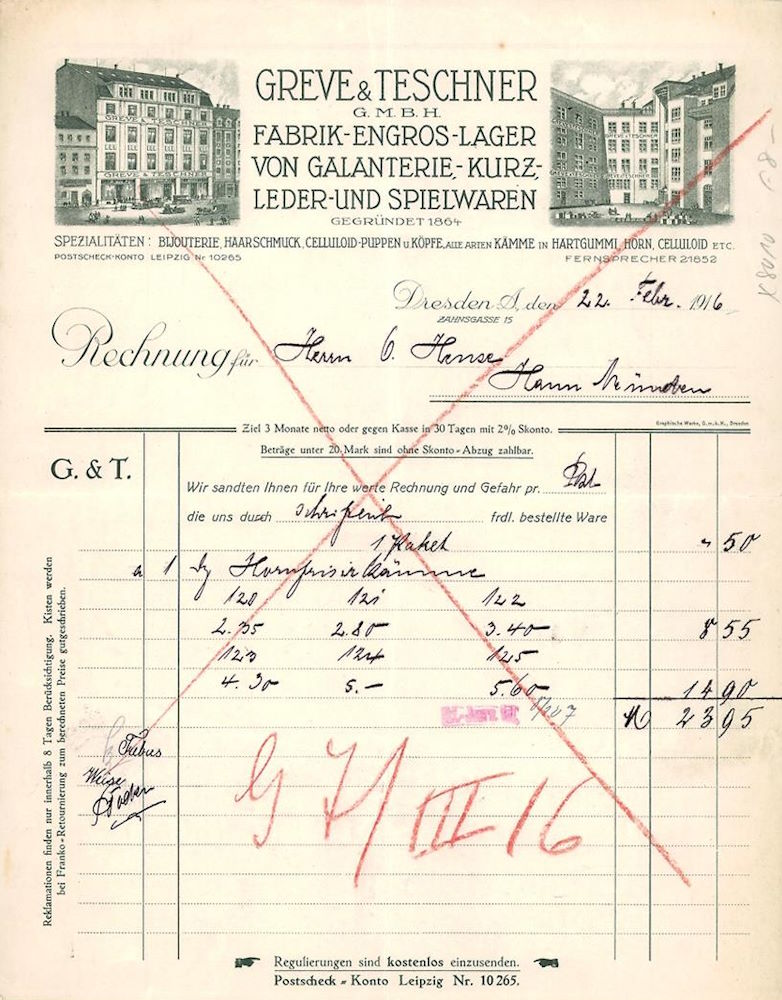 GREVE & TESCHNER
G.M.B.H.
FABRIK-ENGROS-LAGER
VON GALANTERIE,- KURZ-,
LEDER-UND SPIELWAREN
GEGRÜNDET 1864
GREVE & TESCHNER
GREVE & TESCHNER
SPEZIALITÄTEN: BIJOUTERIE, HAARSCHMUCK, CELLULOID-PUPPEN u. KÖPFE, ALLE ARTEN KÄMME IN HARTGUMMI, HORN, CELLULOID ETC.
POSTSCHECK-KONTO LEIPZIG Nr 10265
FERNSPRECHER 21852
Dresden-A, den 22. Febr. 1916
ZAHNSGASSE 15
Rechnung für Herrn O. Hense
Hann Münden
Ziel 3 Monate netto oder gegen Kasse in 30 Tagen mit 2% Skonto.
Graphische Werke, G.m.b.H., Dresden
Beträge unter 20 Mark sind ohne Skonto-Abzug zahlbar.
G. & T.
Wir sandten Ihnen für Ihre werte Rechnung und Gefahr pr. Post
die uns durch schriftlich frdl. bestellte Ware
1 Paket " 50
a 1 Dz Hornfrisirkämme
120 121 122
2.35 2.80 3.40 8 55
123 124 125
4.30 5.– 5.60 14 90
M 23 95
G 7/III 16
Reklamationen finden nur innerhalb 8 Tagen Berücksichtigung. Kisten werden
bei Franko-Retournierung zum berechneten Preise gutgeschrieben.
Regulierungen sind kostenlos einzusenden.
Postscheck-Konto Leipzig Nr. 10265.